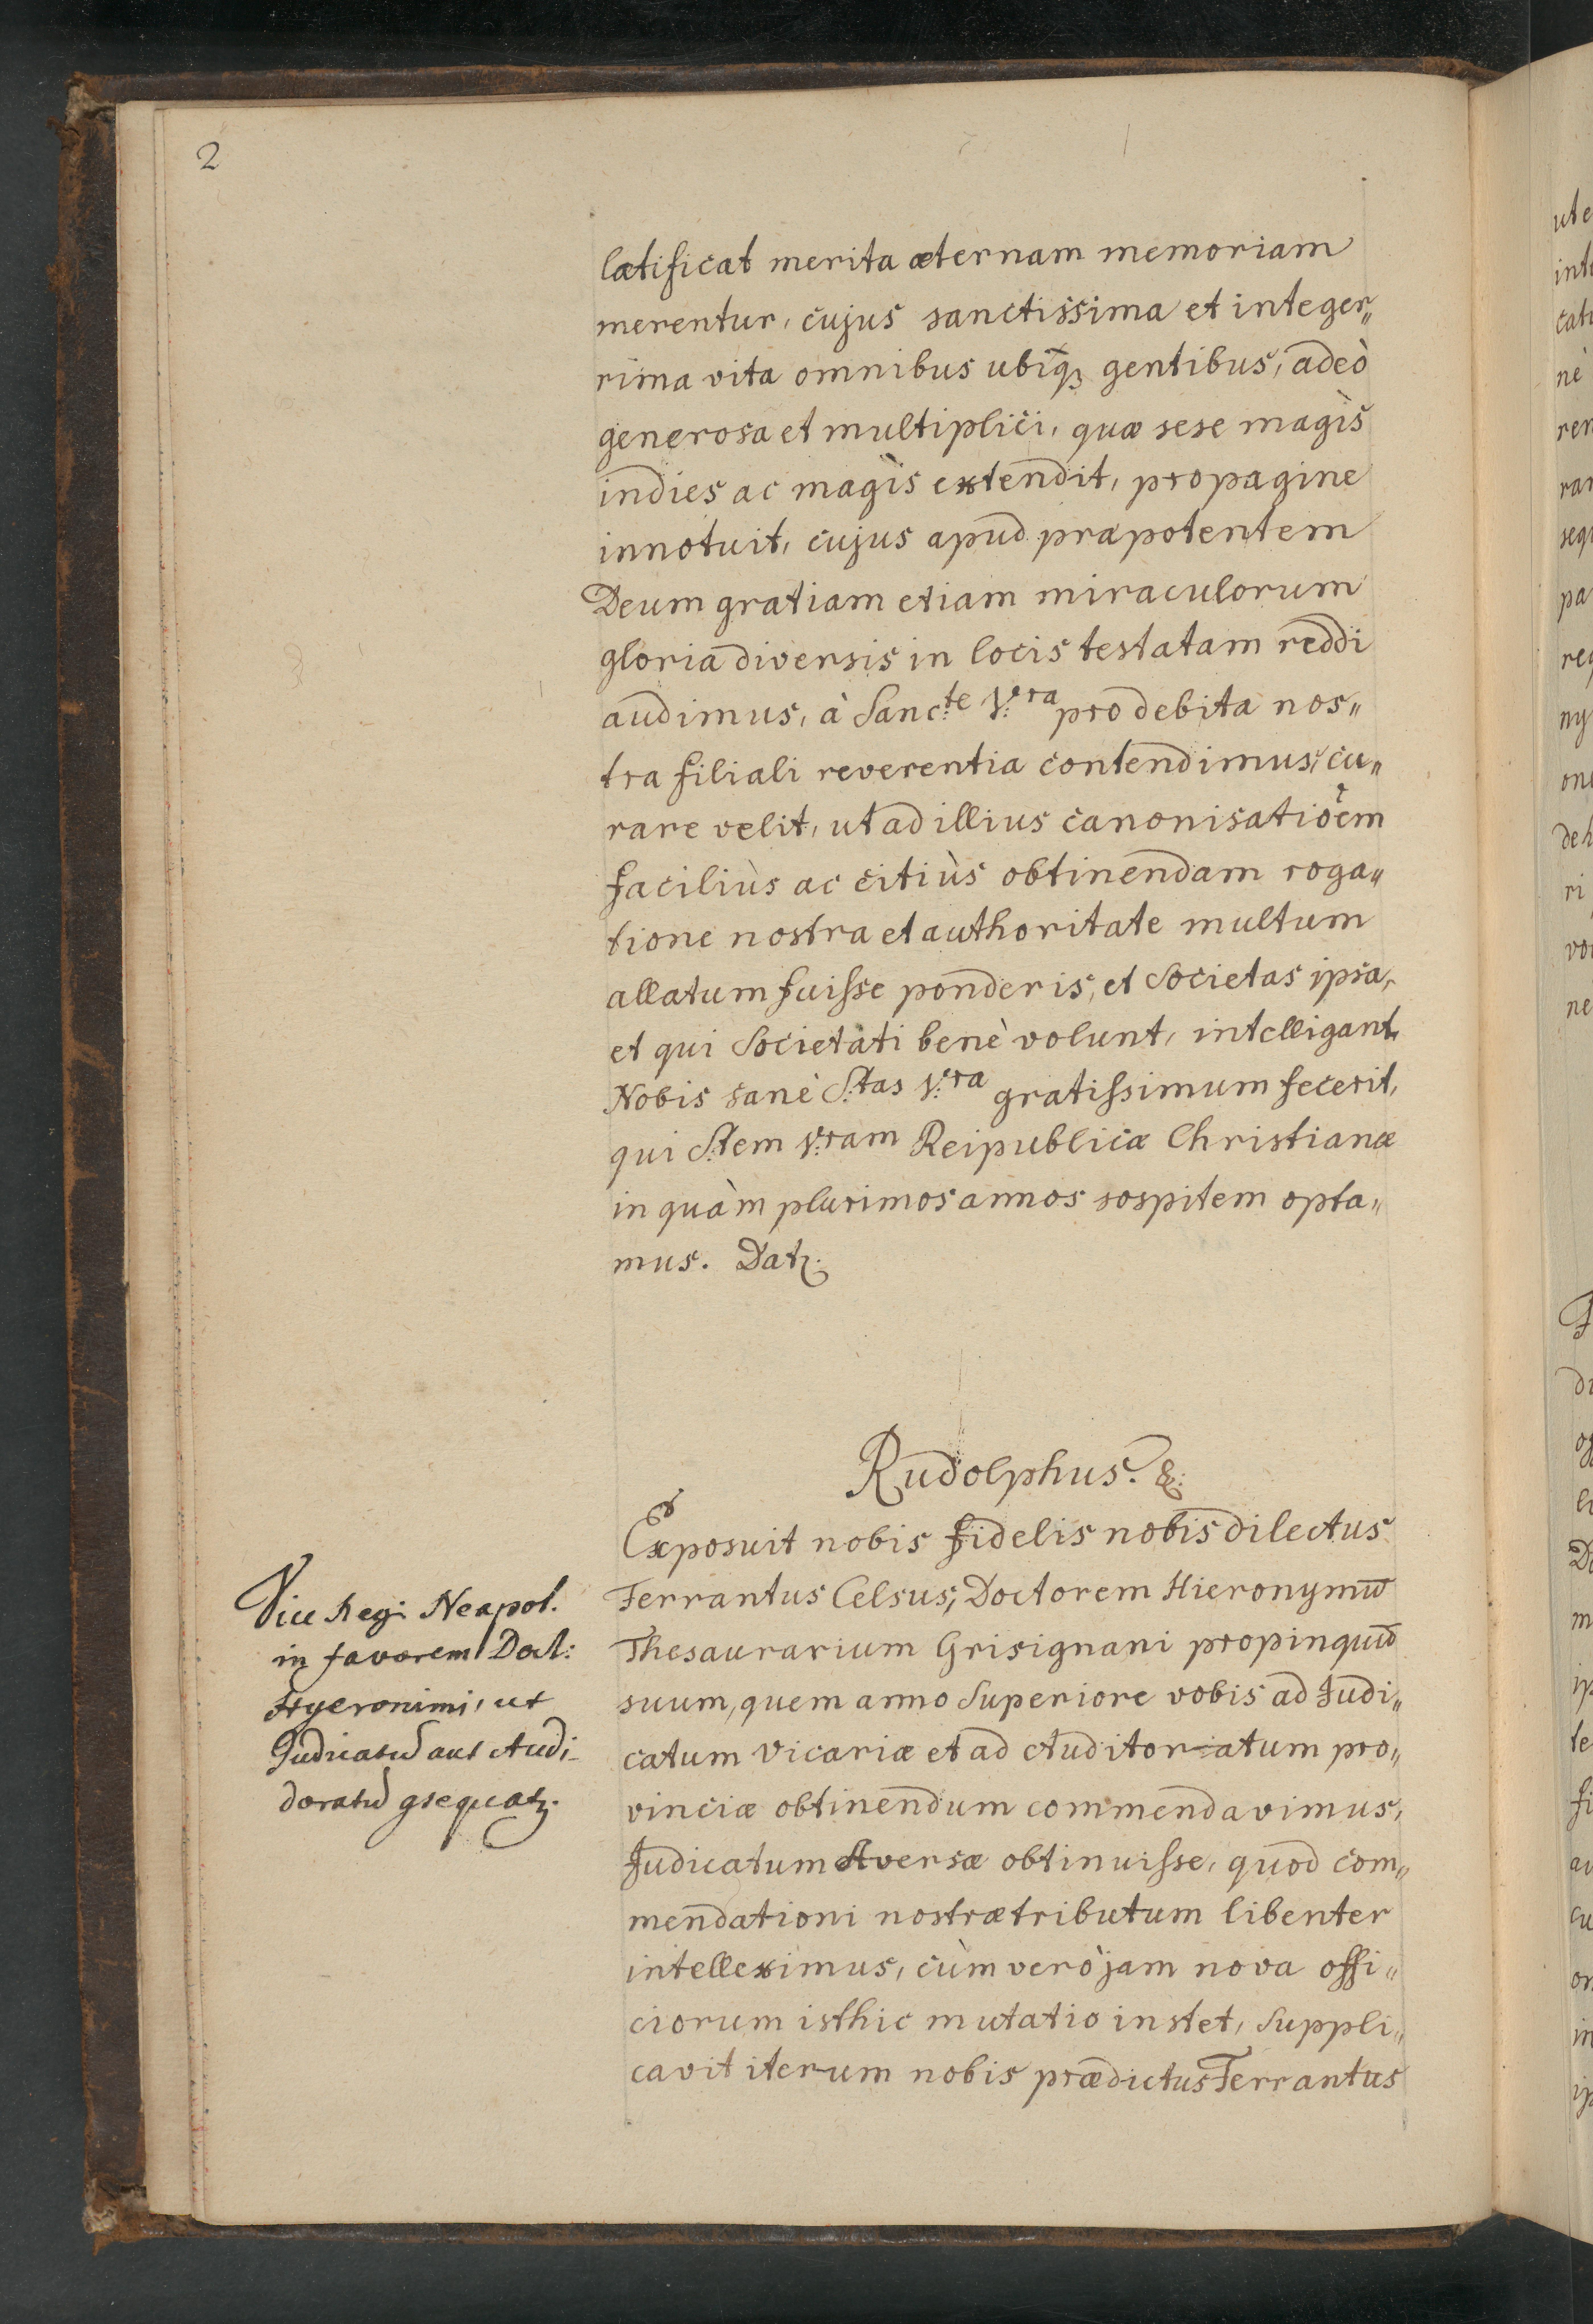 2
lætificat merita æternam memoriam
merentur, cujus sanctissima et integer„
rima vita omnibus ubiq̃ꝫ gentibus, adeò
generosa et multiplici, quæ sese magìs
indies ac magìs extendit, propagine
innotuit, cujus apud præpotentem
Deum gratiam etiam miraculorum
gloria diversis in locis testatam reddi
audimus, à Sanc:te V:ra pro debita nos„
tra filiali reverentia contendimus, cu„
rare velit, ut ad illius canonisatiõem
faciliùs ac citiùs obtinendam roga„
tione nostra et authoritate multum
allatum fuisse ponderis, et Societas ipsa,
et qui Societati benè volunt, intelligant,
Nobis sanè S:tas V:ra gratissimum fecerit,
qui S:tem V:ram Reipublicæ Christianæ
in quàm plurimos annos sospitem opta„
mus. Datꝫ.
Rudolphus. &:
Exposuit nobis fidelis nobis dilectus
Ferrantus Celsus, Doctorem Hieronymũ
Thesaurarium Grisignani propinquũ
suum, quem anno Superiore vobis ad Judi„
catum Vicariæ et ad Auditoriatum pro„
vinciæ obtinendum commendavimus,
Judicatum Aversæ obtinuisse, quod com„
mendationi nostræ tributum libenter
intelleximus, cùm verò jam nova offi„
ciorum isthic mutatio instet, Suppli„
cavit iterum nobis prædictus Ferrantus
Vice Regi Neapol.
in favorem Doct:
Hyeronimi, ut
Judicatũ aut Audi-
doratũ gsequatꝫ.